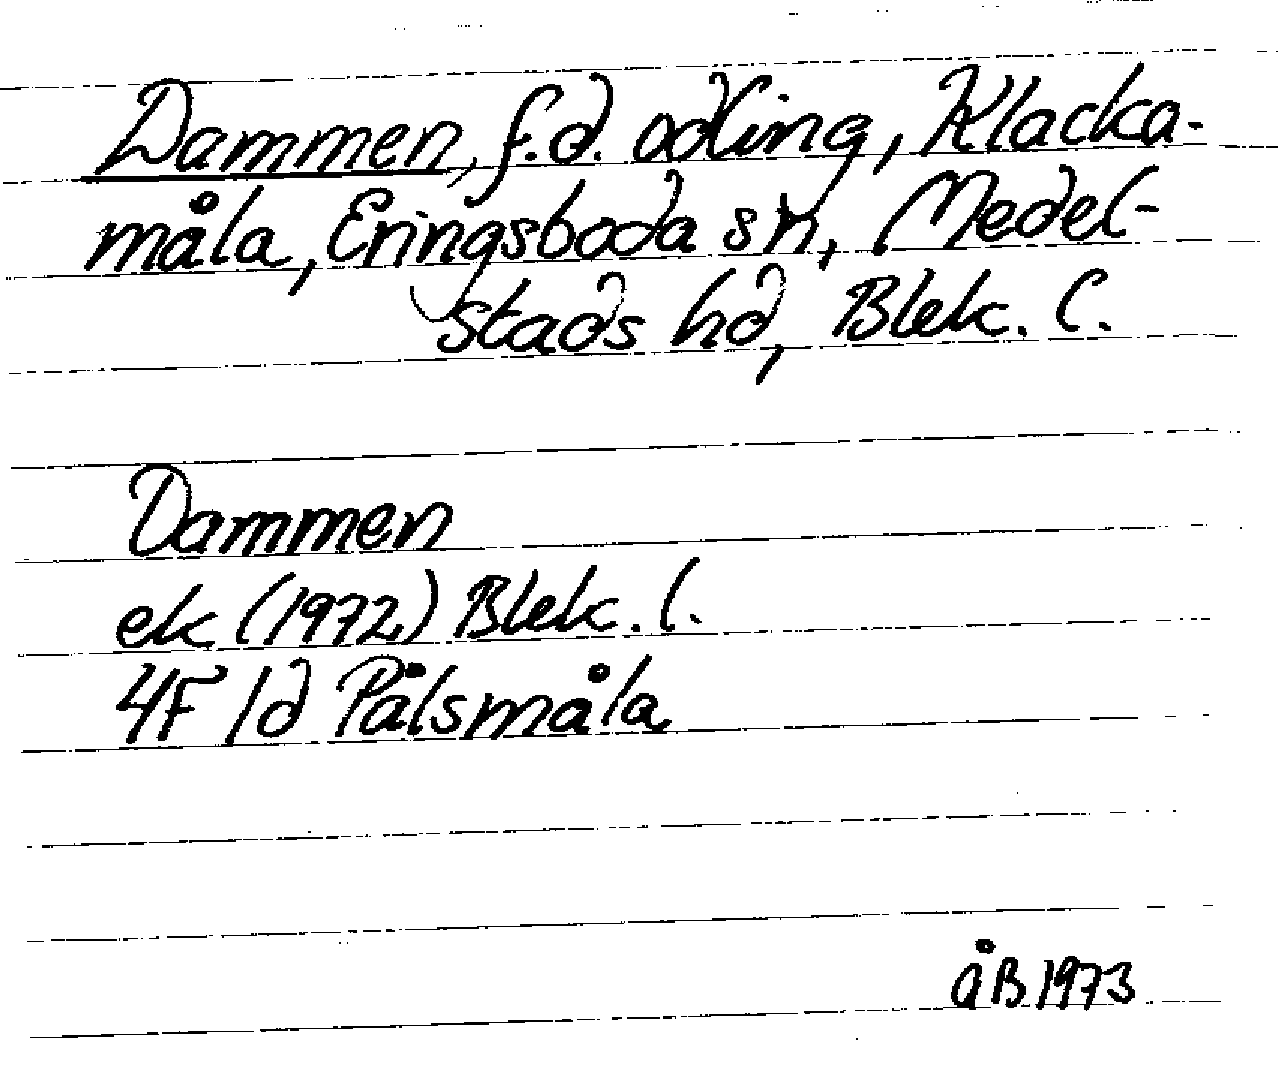 Dammen, f.d. odling, Klacka-
måla, Eringsboda sn, Medel-
stads hd, Blek. l.
Dammen
ek (1972) Blek. l.
4F 1d Pålsmåla
åB 1973